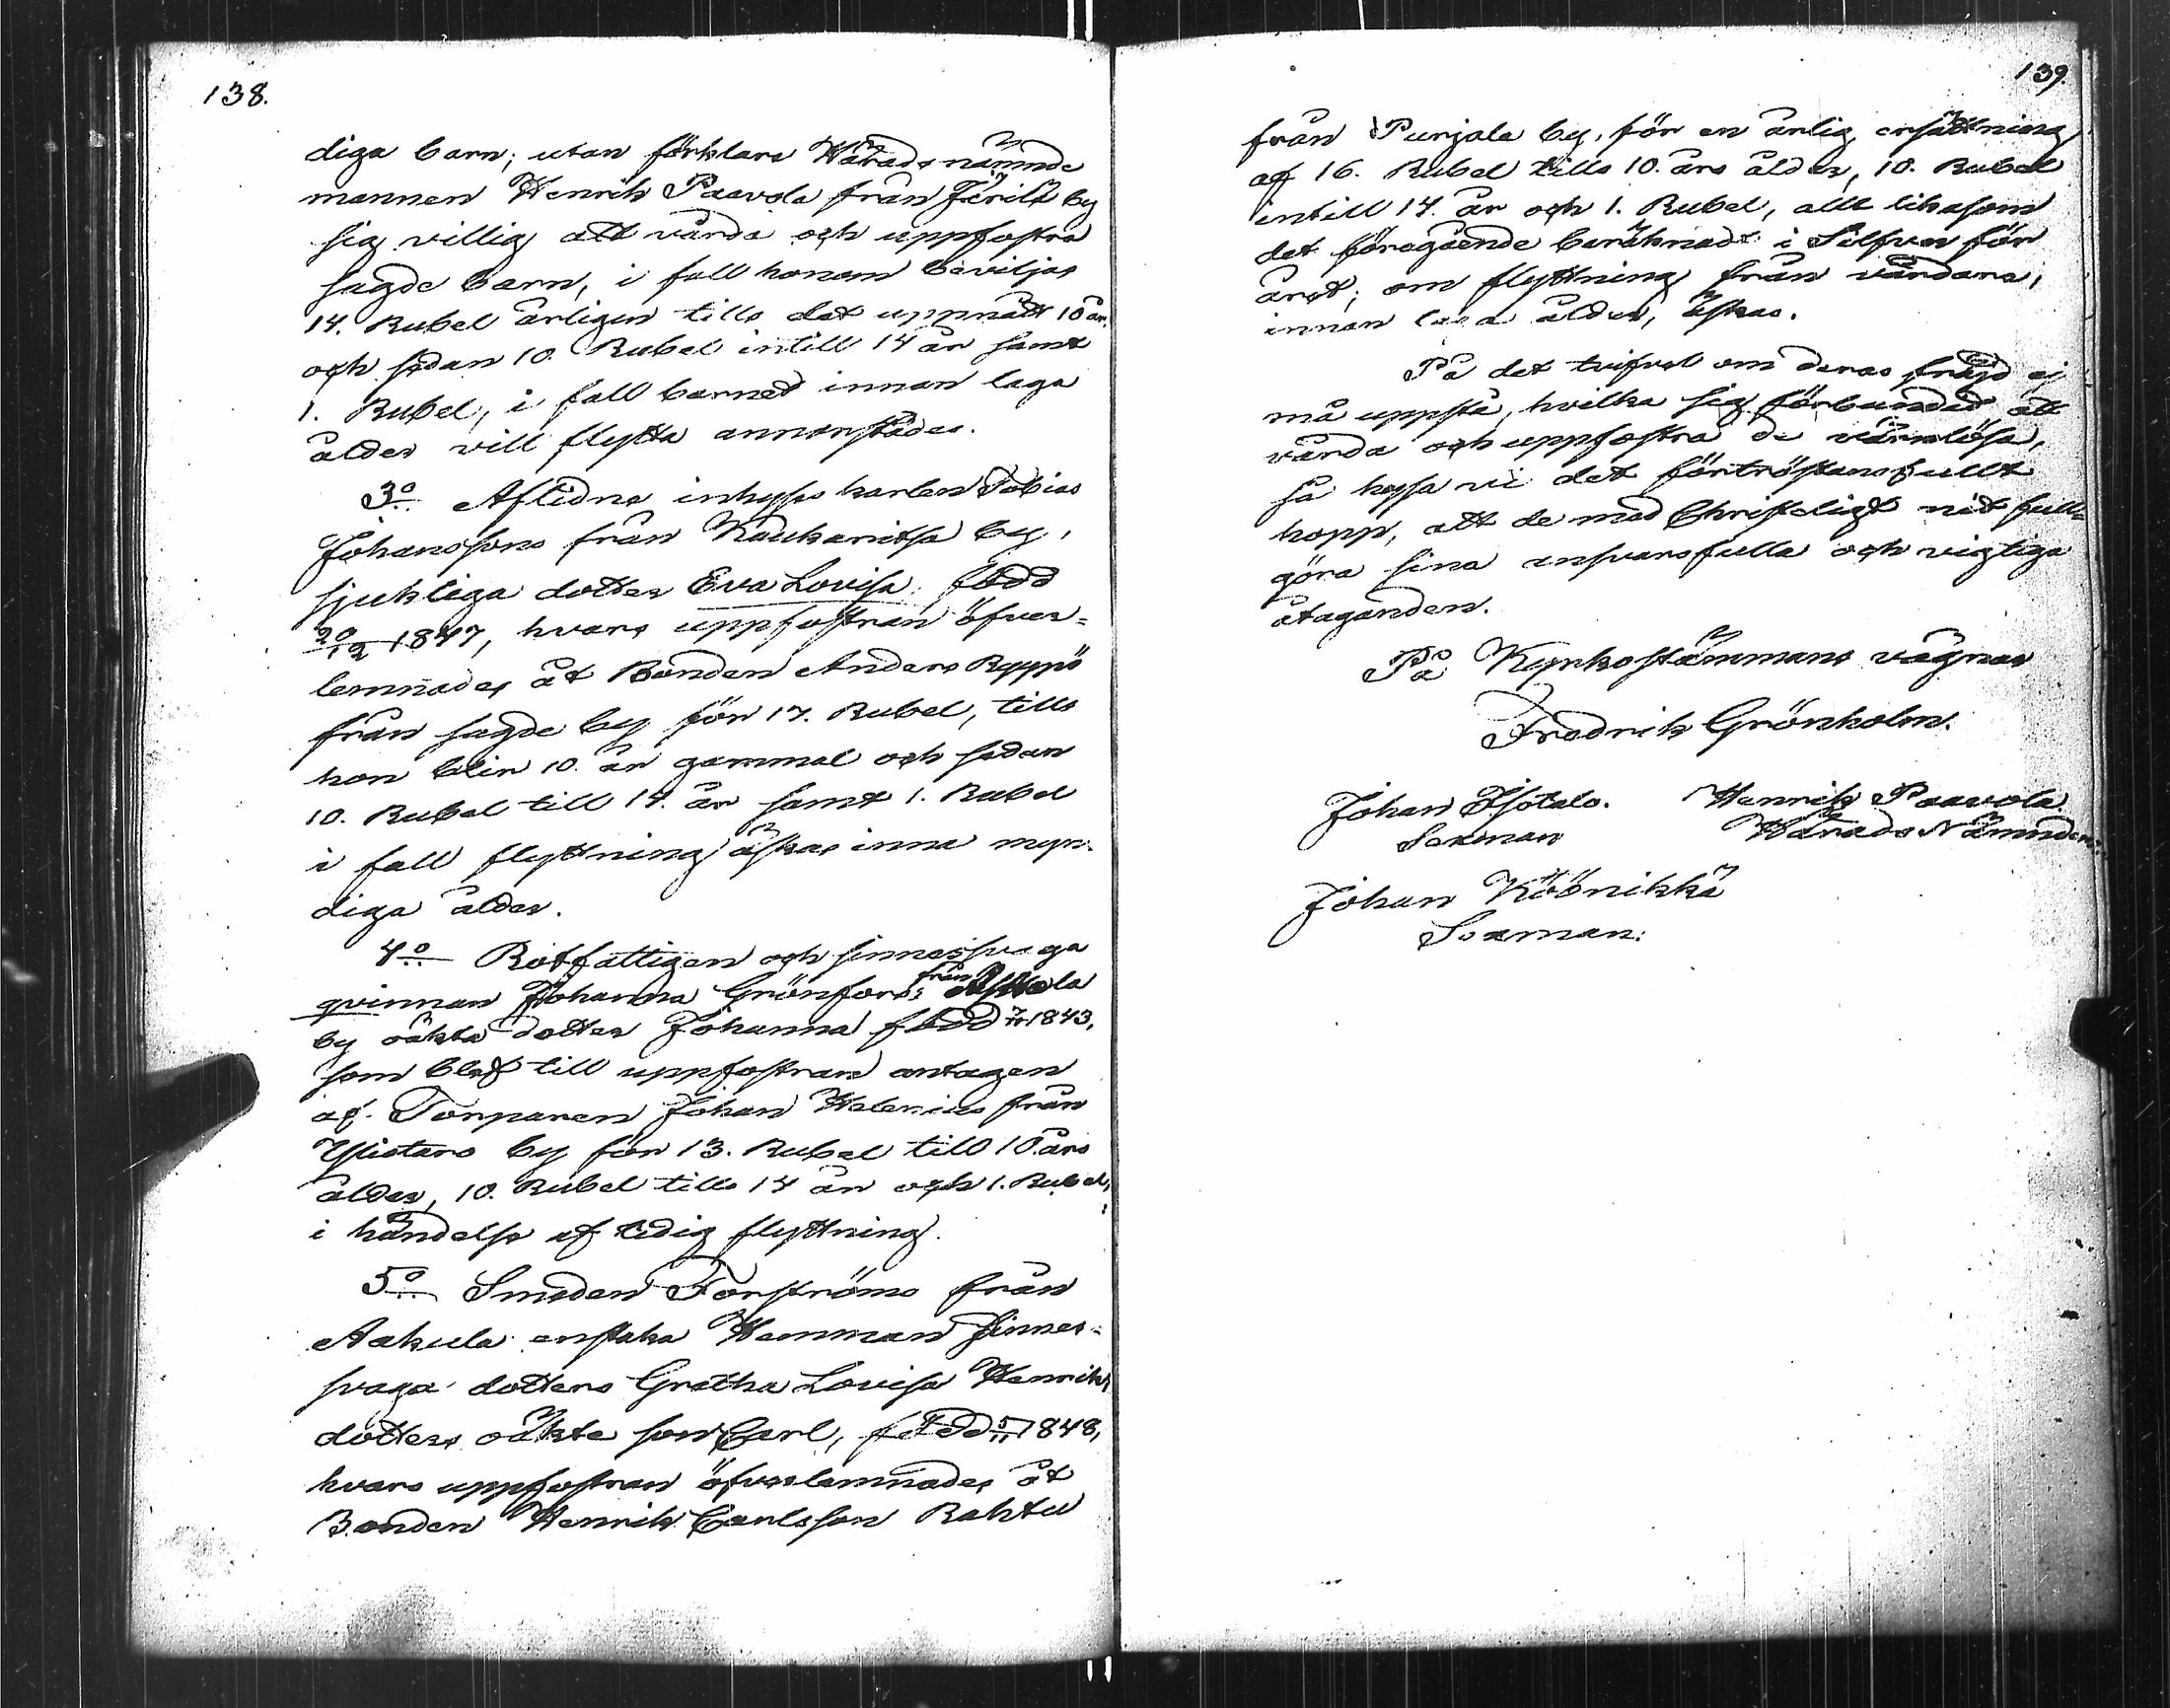 138.
diga barn; utan förklara Härads nämnde
mannen Henrik Paavola från Järilä by
sig villig att vårda och uppfostra
sagde barn, i fall honom beviljas
14. Rubel årligen tills det uppnått 10 år.
och sedan 10. Rubel intill 14 år samt
1. Rubel, i fall barnet innan laga
ålder vill flytta annorstädes.
3o Aflidne inhyses karlen Tobias
Johanssons från Kaukaritsa by,
sjukliga dotter Eva Lovisa, född
20/12 1847, hvars uppfostran öfver-
lemnades åt Bonden Anders Ryppö
från sagde by för 17. Rubel, tills
hon blir 10. år gammal och sedan
10. Rubel till 14. år samt 1. Rubel
i fall flyttning äskas inna myn-
diga ålder.
4o Rotfattigen och sinnessvaga
qvinnan Johanna Grönfors, från
by oäkta dotter Johanna född 1843,
som blef till uppfostran antagen
af Torparen Johan Walenius från
Ylistaro by för 13. Rubel till 10 års
ålder, 10. Rubel tills 14 år och 1. Rubel,
i händelse af tidig flyttning.
5o Smeden Forströms från
Aakula enstaka Hemman sinnes-
svaga dotters Gretha Lovisa Henriks
dotters oäkta son Carl, född 5/11 1848,
hvars uppfostran öfverlemnades åt
Bonden Henrik Carlsson Rahtu
139.
från Purjala by, för en årlig ersättning
af 16. Rubel tills 10. års ålder, 10. Rubel
intill 14. år och 1. Rubel, allt likasom
det föregående beräknadt i Silfver för
året; om flyttning från vårdare,
innan laga ålder, äskas.
På det tvifvel om deras frejd ej
må uppstå, hvilka sig förbundit att
vårda och uppfostra de värnlösa,
så hysa vi det förtröstansfullt
hopp, att de med Christeligt nit full-
göra sina ansvarsfulla och vigtiga
åtaganden.
På Kyrkostämmans vägnar
Fredrik Grönholm.
Johan Isotalo. Henrik Paavola
Sexman Härads Nämndem:
Johan Köönikkä
Sexman: